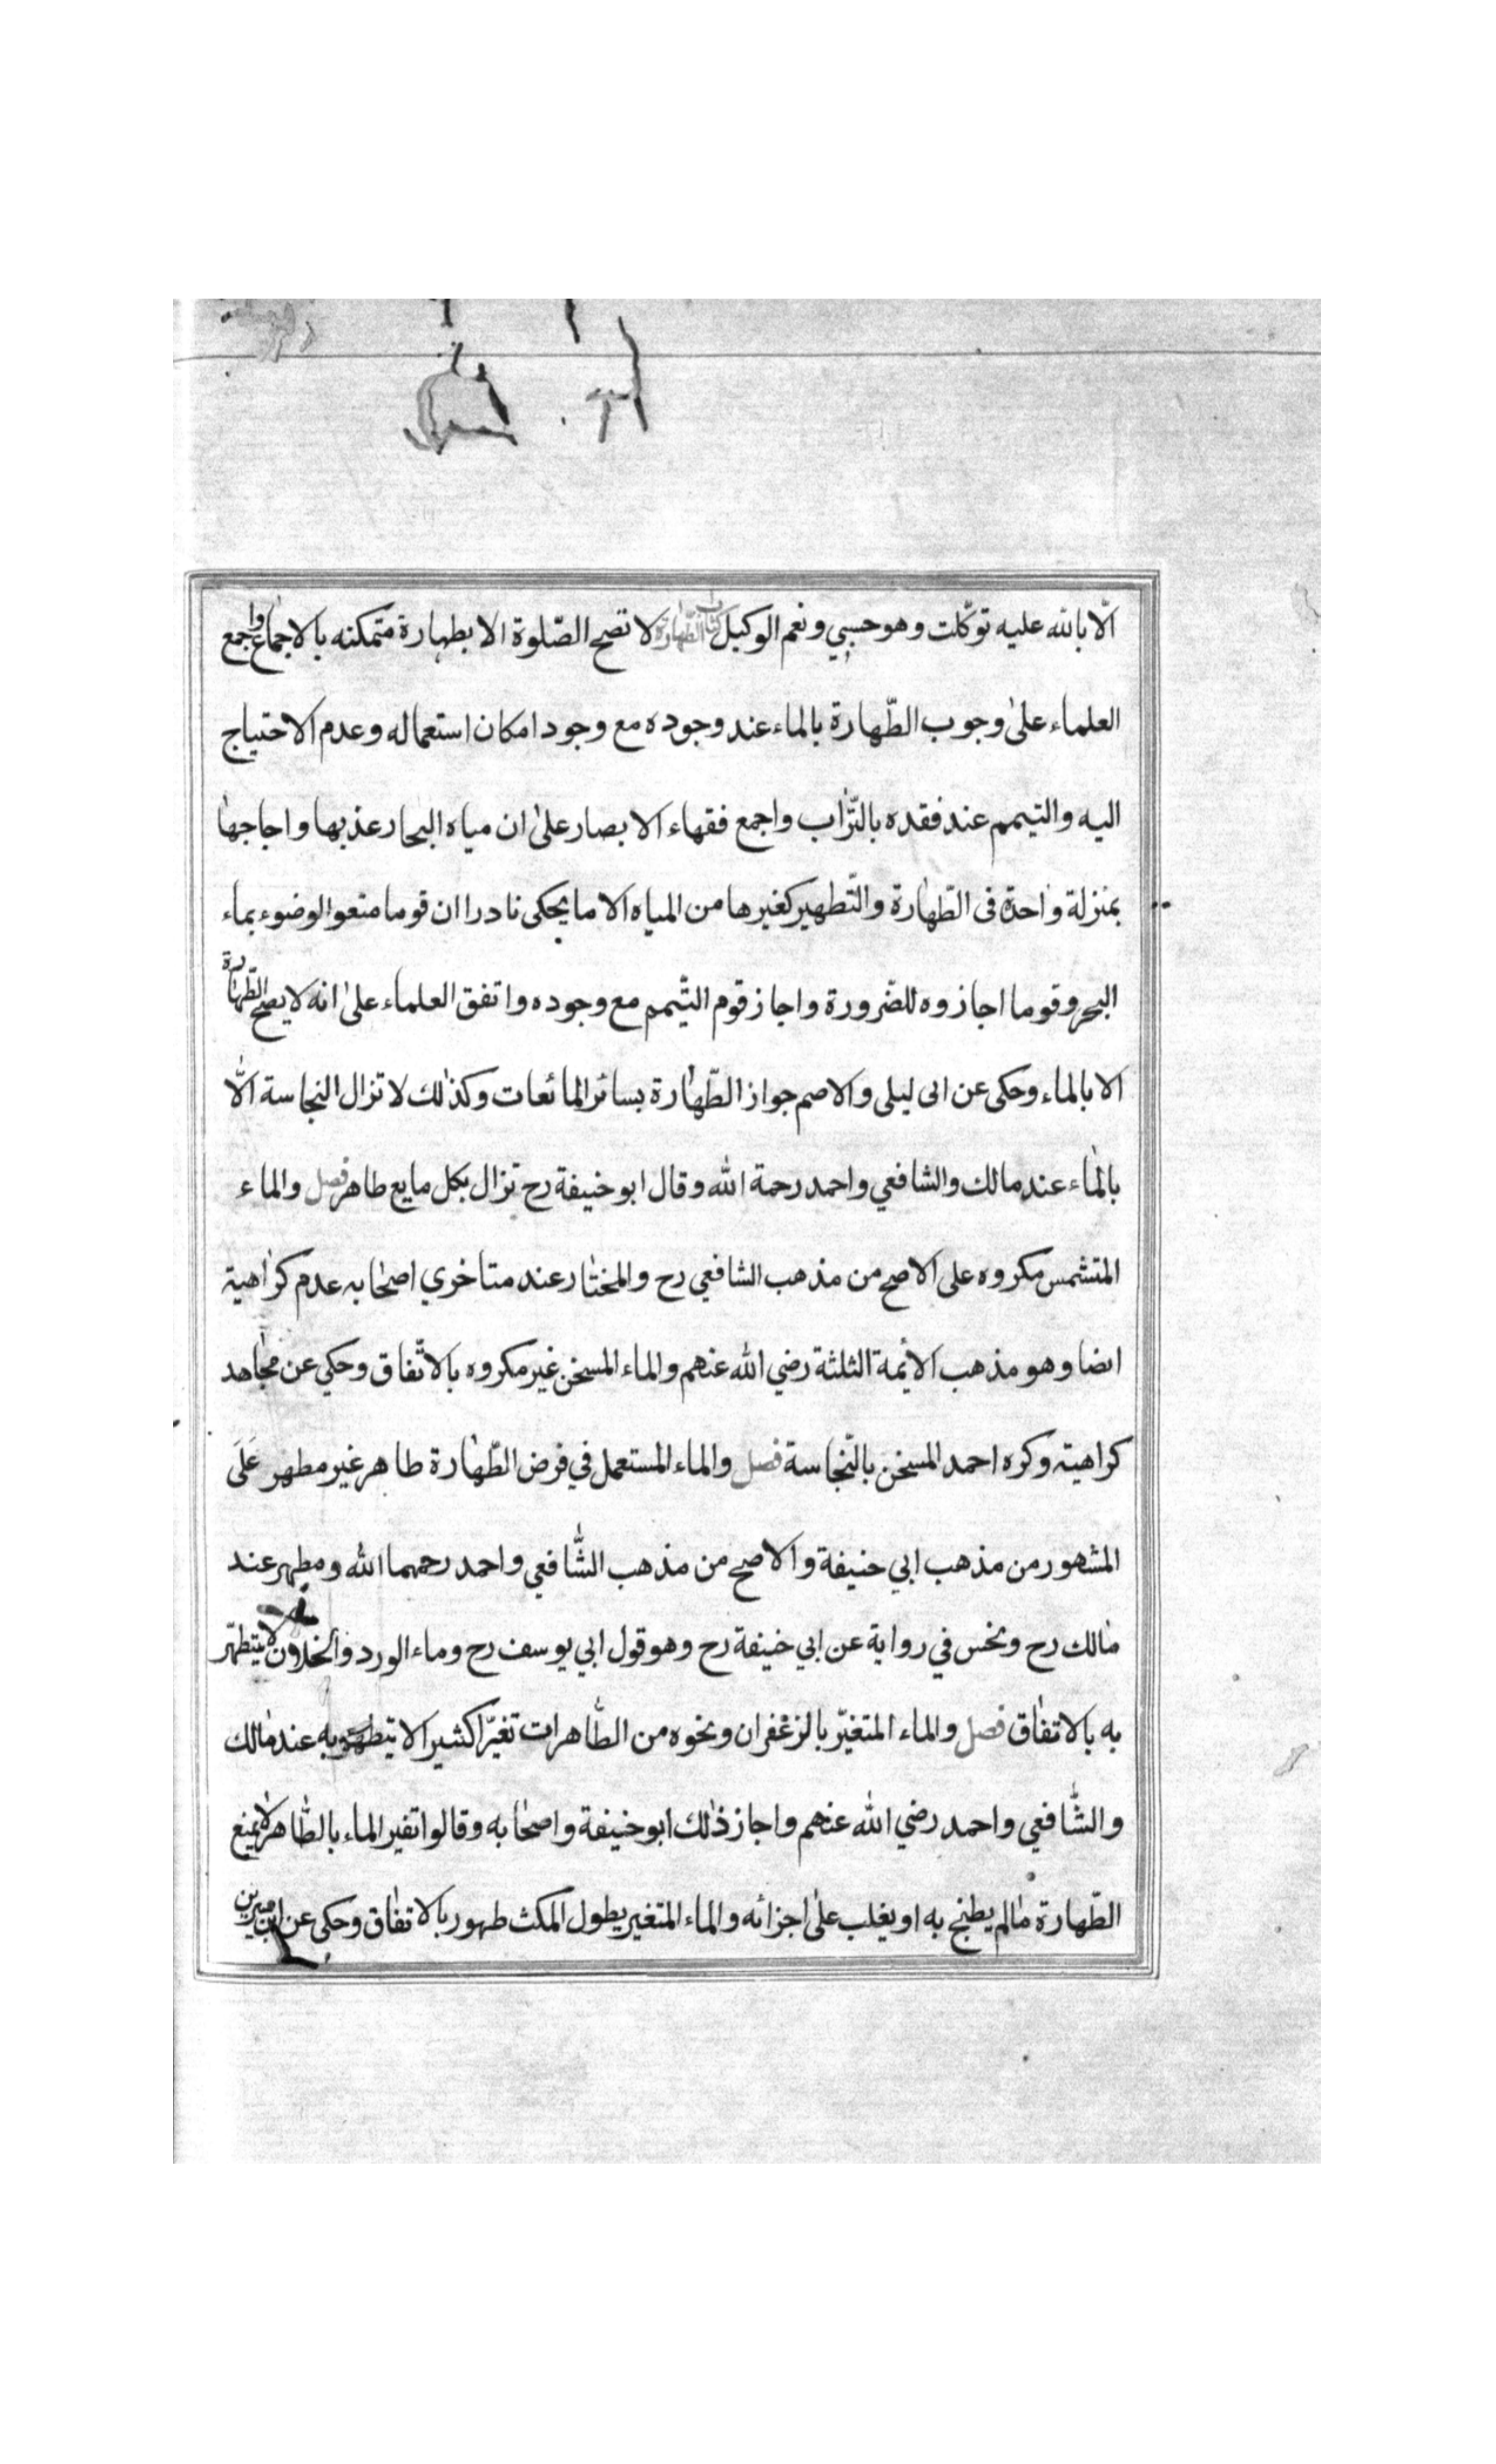 الّا بالله عليه توكّلت وهو حسبي ونعم الوكيل كتاب الطّهارة لا تصح الصّلوة الا بطهارة متمكنه بالاجماع واجمع
العلماء علىٰ وجوب الطّهارة بالماء عند وجوده مع وجود امكان استعماله وعدم الاحتياج
اليه والتيمم عند فقده بالتّراب واجمع فقهاء الابصار علىٰ ان مياه البحار عذبها واجاجها
بمنزلة واحدة فى الطّهارة والتّطهير كغيرها من المياه الا ما يحكى نادرا ان قوما منعوا الوضوء بماء
البحر وقوما اجازوه للضّرورة واجاز قوم التيّمم مع وجوده واتفق العلماء علىٰ انه لا يصح الطّهارة
الا بالماء وحكى عن ابى ليلى والاصم جواز الطّهارة بسائر المائعات وكذلك لا تزال النجاسة الّا
بالماء عند مالك والشافعي واحمد رحمة الله وقال ابو حنيفة رح تزال بكل مايع طاهر فصل والماء
المتشمس مكروه على الاصح من مذهب الشافعي رح والمختار عند متاخري اصحابه عدم كراهية
ايضا وهو مذهب الأيمة الثلثة رضي الله عنهم والماء المسخن غير مكروه بالاتّفاق وحكي عن مجاهد
كراهية وكره احمد المسخن بالنّجاسة فصل والماء المستعمل في فرض الطّهارة طاهر غير مطهر عَلَى
المشهور من مذهب ابي حنيفة والاصح من مذهب الشّافعي واحمد رحمهما الله ومطهر عند
مالك رح ونجس في رواية عن ابي حنيفة رح وهو قول ابي يوسف رح وماء الورد والخلاف لا يتطهّر
به بالاتفاق فصل والماء المتغيّر بالزعفران ونحوه من الطّاهرات تغيّرا كثيرا لا يتطهر به عند مالك
والشّافعي واحمد رضي الله عنهم واجاز ذلك ابو حنيفة واصحابه وقالوا تغير الماء بالطّاهر لا يمنع
الطّهارة مالم يطبخ به او يغلب علىٰ اجزائه والماء المتغير بطول المكث طهور بالاتفاق وحكى عن ابن سيرين